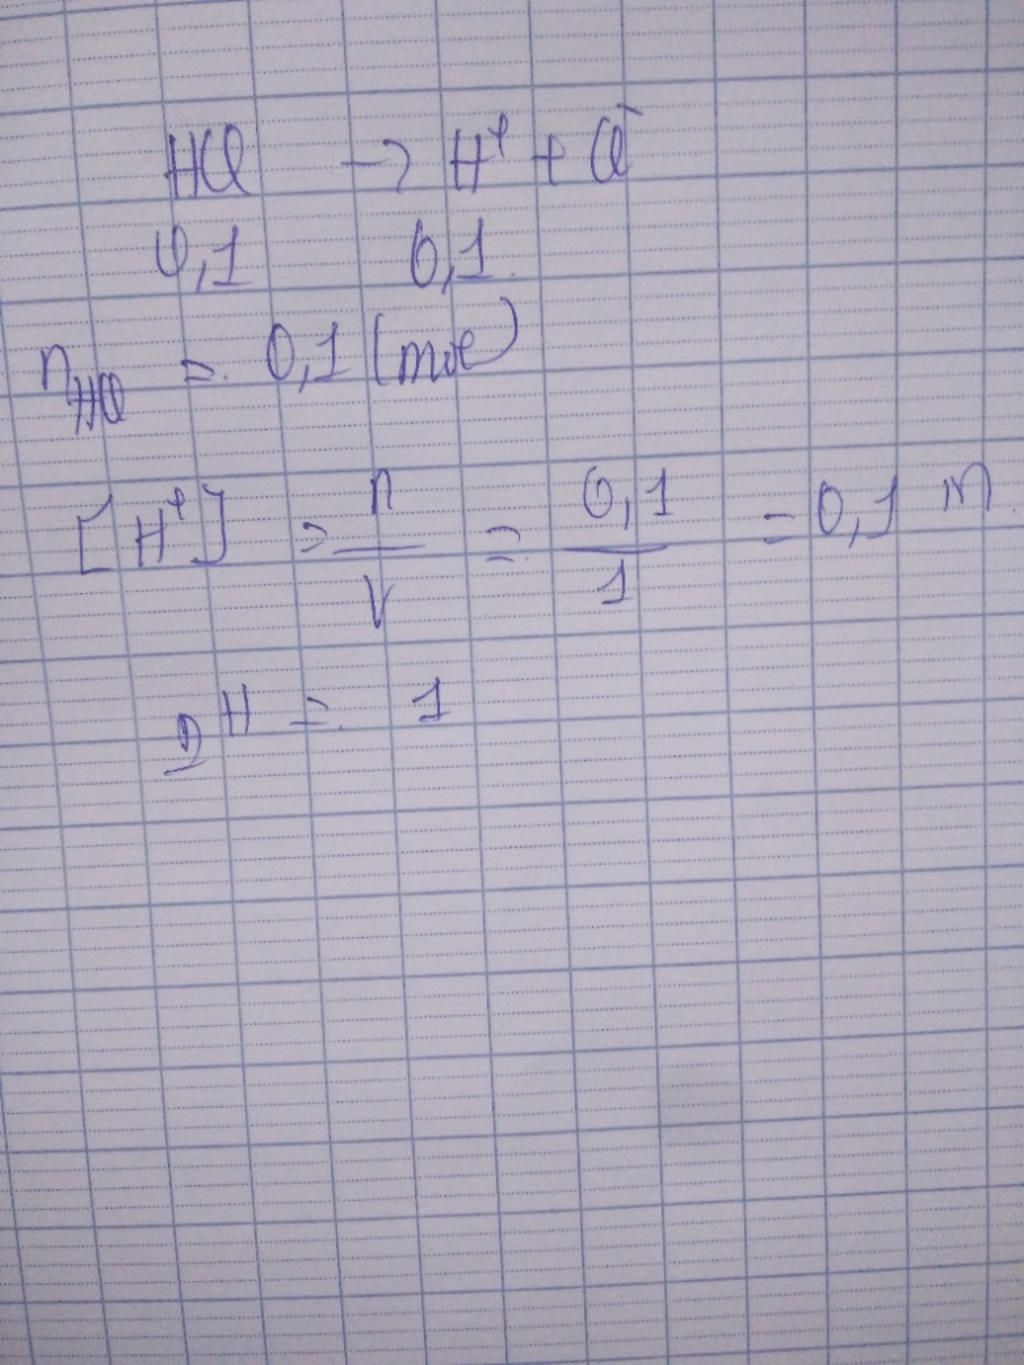 HCl → H⁺ + Cl⁻
0,1 0,1
n_HCl = 0,1 (mol)
[H⁺] = n/V = 0,1/1 = 0,1 M
pH = 1